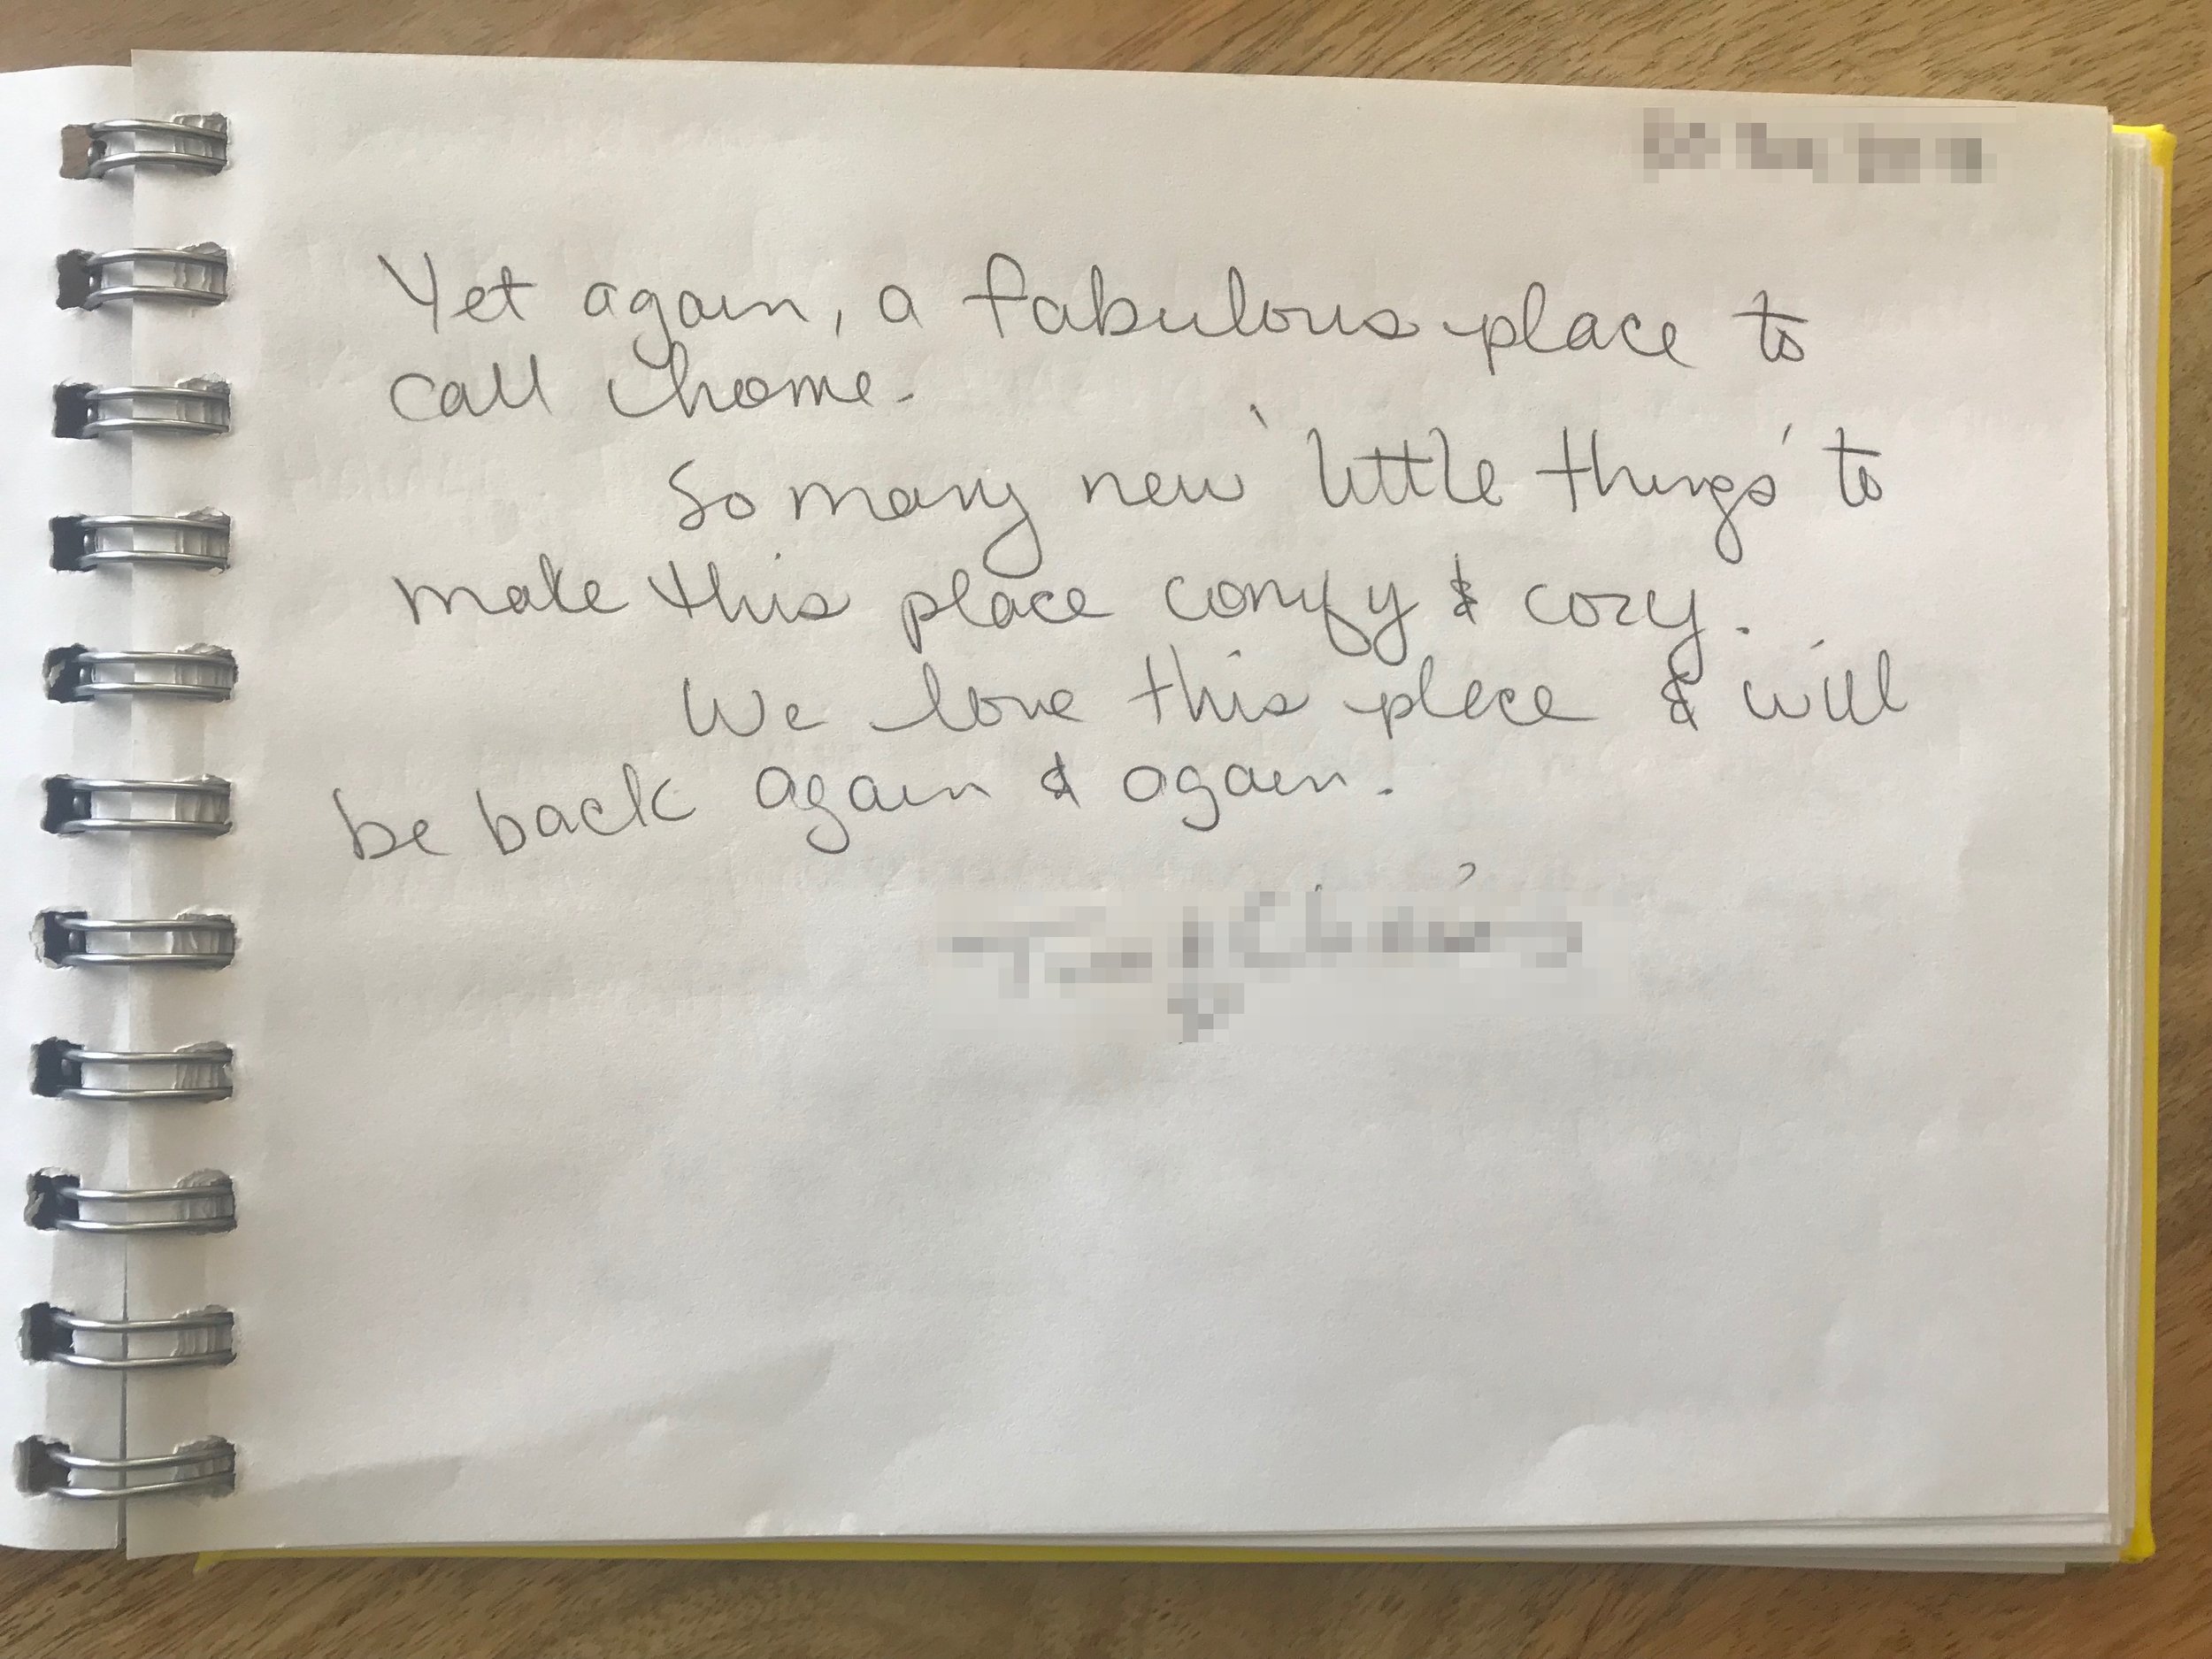 Yet again, a fabulous place to
call home.
So many new 'little things' to
make this place comfy & cozy.
We love this place & will
be back again & again.